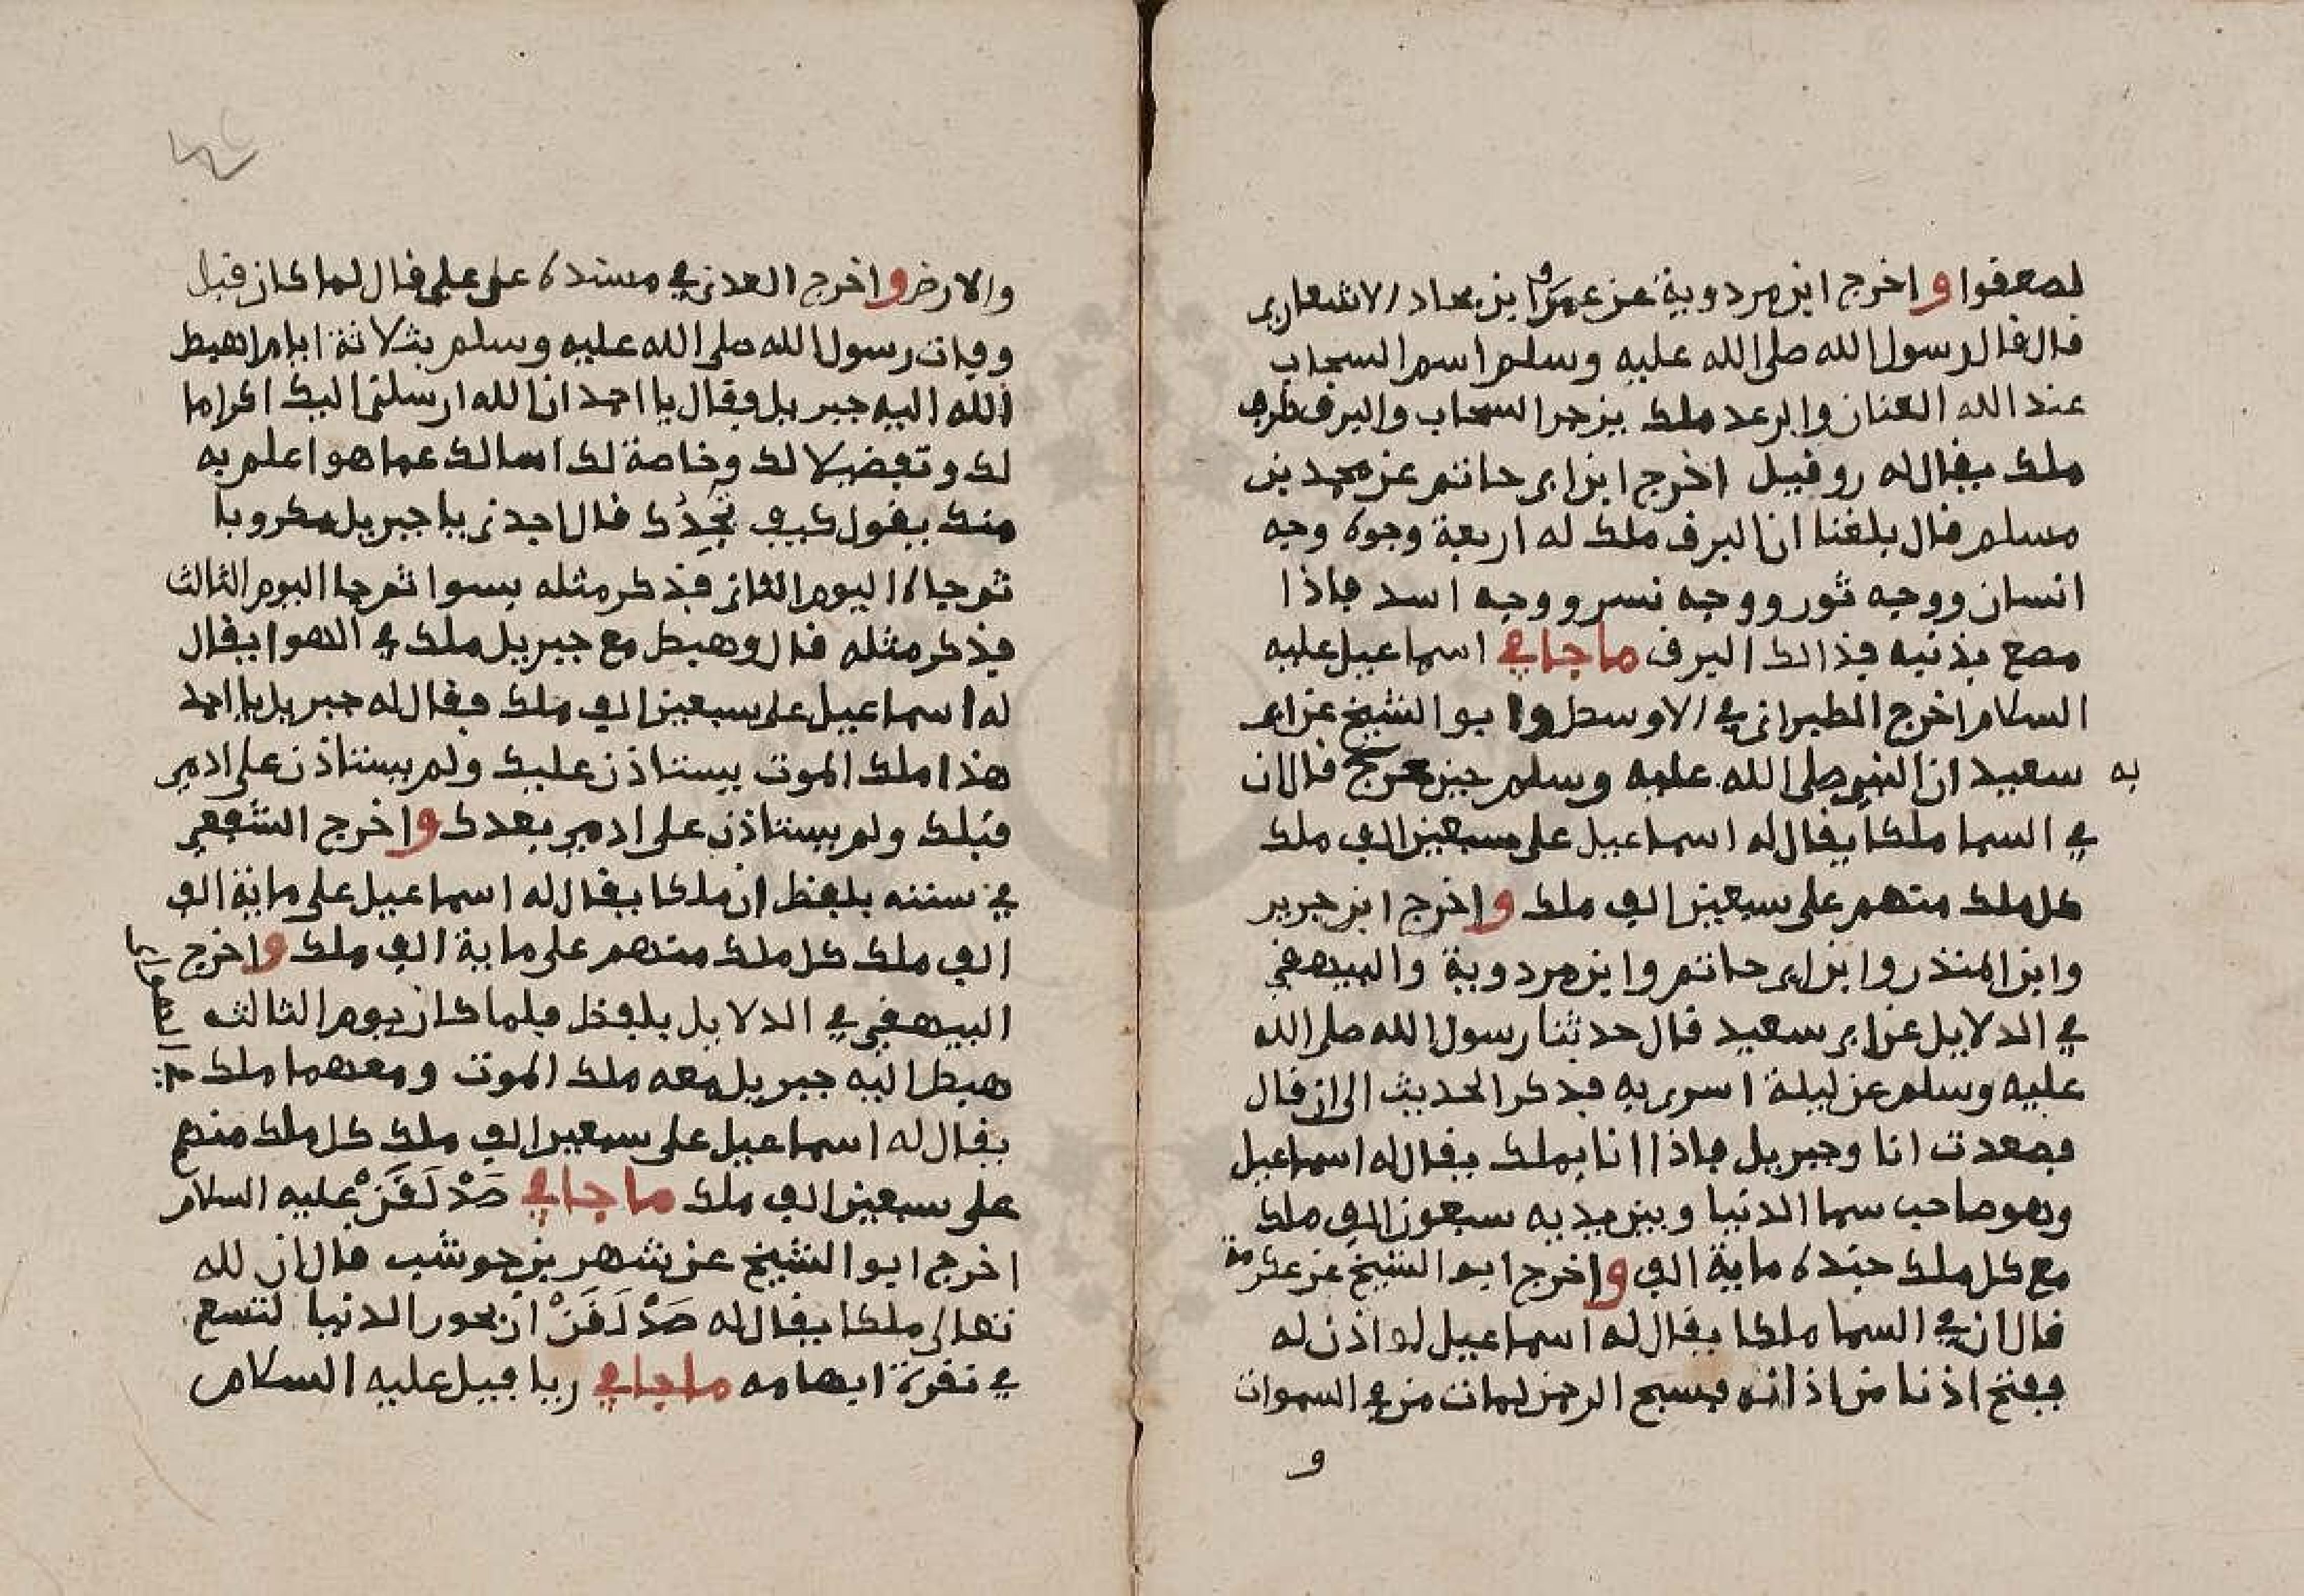 لصعفوا واخرج ابن مردوية عن عمروا بن بجاد الاشعاري
قال قال رسول الله صلى الله عليه وسلم اسم السحاب
عند الله العنان والرعد ملك يزجر السحاب والبرق طرف
ملك يقال له روفيل اخرج ابن ابي حاتم عن محمد بن
مسلم قال بلغنا ان البرق ملك له اربعة وجوه وجه
انسان ووجه ثور ووجه نسر ووجه اسد فاذا
مصع بذنبه فذالك البرق ما جا في اسماعيل عليه
السلام اخرج الطبراني في الاوسط وابو الشيخ عن ابي
سعيد ان النبي صلى الله عليه وسلم حين عرج قال ان
به
في السما ملكا يقال له اسماعيل على سبعين الف ملك
كل ملك منهم على سبعين الف ملك واخرج ابن جرير
وابن المنذر وابن ابي حاتم وابن مردوية والبيهقي
في الدلايل عن ابي سعيد قال حدثنا رسول الله صلى الله
عليه وسلم عن ليلة اسري به فذكر الحديث الى ان قال
فصعدت انا وجبريل فاذا انا بملك يقال له اسماعيل
وهو صاحب سما الدنيا وبين يديه سبعون الف ملك
مع كل ملك جنده ماية الف واخرج ابو الشيخ عن عكرمة
قال ان في السما ملكا يقال له اسماعيل لو اذن له
ففتح اذنا من اذانه فسبح الرحمن لمات من في السموات
و
والارض واخرج العدني في مسنده على علي قال لما كان قبل
وفات رسول الله صلى الله عليه وسلم بثلاثة ايام اهبط
الله اليه جبريل فقال يا احمد ان الله ارسلني اليك اكراما
لك وتفضيلا لك وخاصة لك اسالك عما هو اعلم به
منك يقول كيف تجدك قال اجدني يا جبريل مكروبا
ثم جاا اليوم الثاني فذكر مثله بسوا ثم جا اليوم الثالث
فذكر مثله قال وهبط مع جبريل ملك في الهوا يقال
له اسماعيل على سبعين الف ملك فقال له جبريل يا احمد
هذا ملك الموت يستاذن عليك ولم يستاذن على ادمي
قبلك ولم يستاذن على ادمي بعدك واخرج الشفعي
في سننه بلفظ ان ملكا يقال له اسماعيل على ماية الف
الف ملك كل ملك منهم على ماية الف ملك واخرج
البيهقي في الدلايل بلفظ فلما كان يوم الثالث
هبط اليه جبريل معه ملك الموت ومعهما ملك
يقال له اسماعيل على سبعين الف ملك كل ملك منهم
على سبعين الف ملك ما جا في صَدْلَفَنْ عليه السلام
اخرج ابو الشيخ عن شهر بن حوشب قال ان لله
تعالى ملكا يقال له صَدْلَفَنْ ان بحور الدنيا لتسع
في نقرة ابهامه ما جا في ريافيل عليه السلام